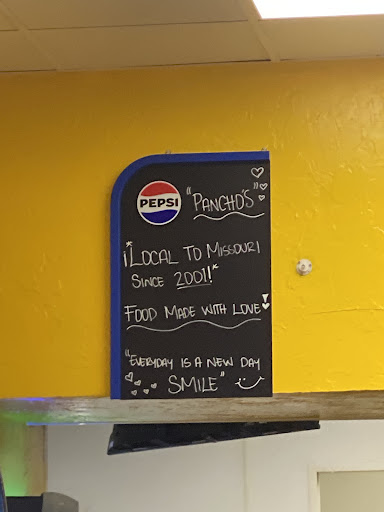 PEPSI
"PANCHO'S"
¡*LOCAL TO MISSOURI
SINCE 2001!*
FOOD MADE WITH LOVE!
"EVERYDAY IS A NEW DAY
SMILE"